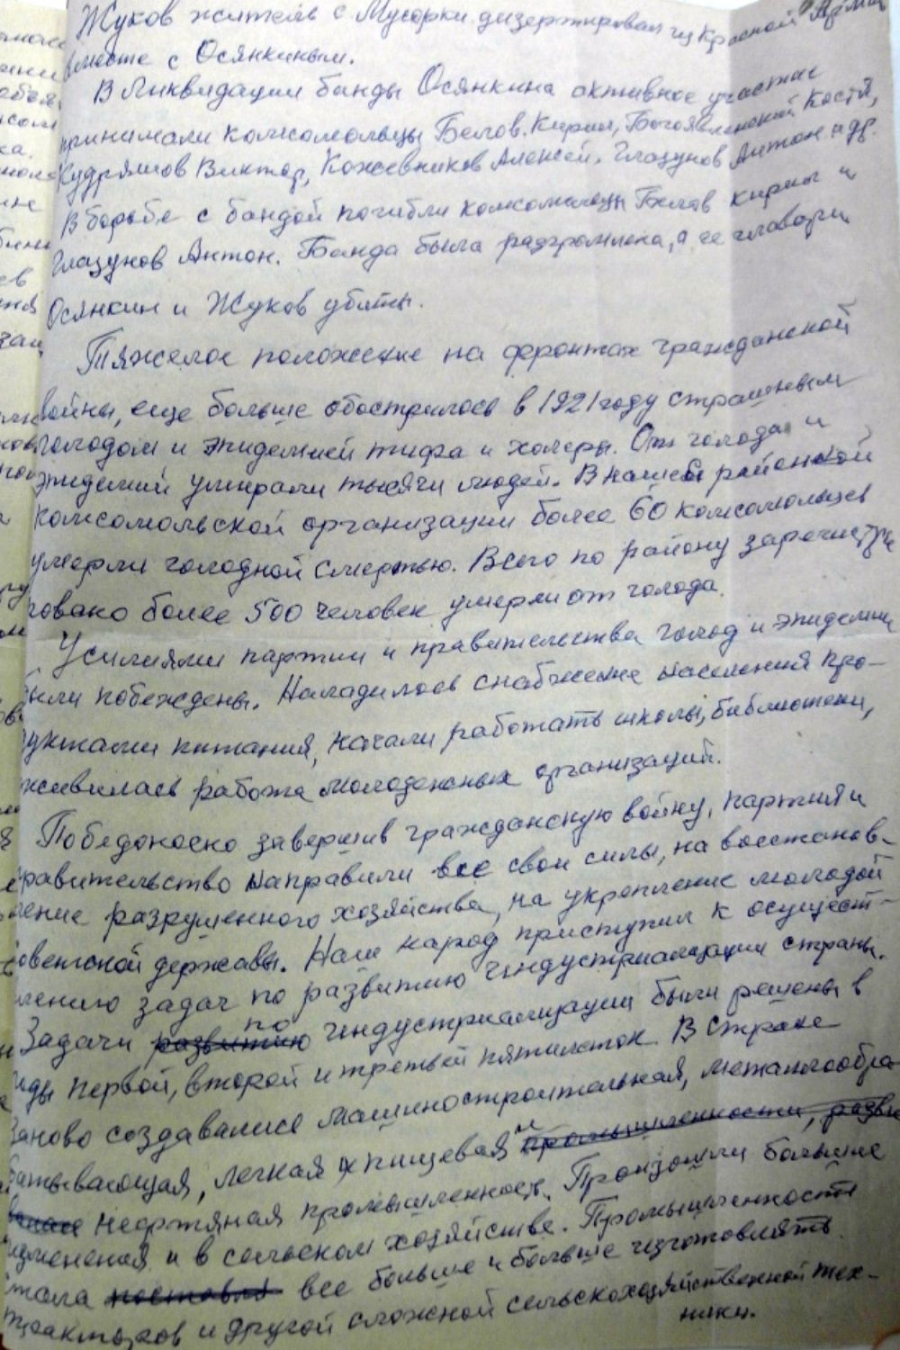 Жуков житель с Мусорки дизертировал из Красной Армии
вместе с Осянкиным.
В Ликвидации банды Осянкина активное участие
принимали комсомольцы Белов. Кирил, Богоявленский Костя,
Кудряшов Виктор, Кожевников Алексей. Глазунов Антон и др.
В борьбе с бандой погибли комсомольцы Белов Кирил и
Глазунов Антон. Банда была разгромлена, а ее главари
Осянкин и Жуков убиты.
Тяжелое положение на фронтах гражданской
войны, еще больше обострилось в 1921 году страшным
голодом и эпидемией тифа и холеры. От голода и
эпидемий умирали тысячи людей. В нашей районной
комсомольской организации более 60 комсомольцев
умерли голодной смертью. Всего по району зарегистри
ровано более 500 человек умерли от голода.
Усилиями партии и правительства голод и эпидемии
были побеждены. Наладилось снабжение населения про-
дуктами питания, начали работать школы, библиотеки,
оживилась работа молодежных организаций.
Победоносно завершив гражданскую войну, партия и
правительство направили все свои силы, на восстанов-
ление разрушенного хозяйства, на укрепление молодой
советской державы. Наш народ приступил к осущест-
влению задач по развитию индустриализации страны.
Задачи развитию по индустриализации были решены в
годы первой, второй и третьей пятилеток. В стране
Заново создавались машиностроительная, металлообра-
батывающая, легкая пищевая и промышленности, разви
вались нефтяная промышленность. Произошли большие
изменения и в сельском хозяйстве. Промышленность
стала поставля все больше и больше изготовлять
тракторов и другой сложной сельскохозяйственной тех-
ники.